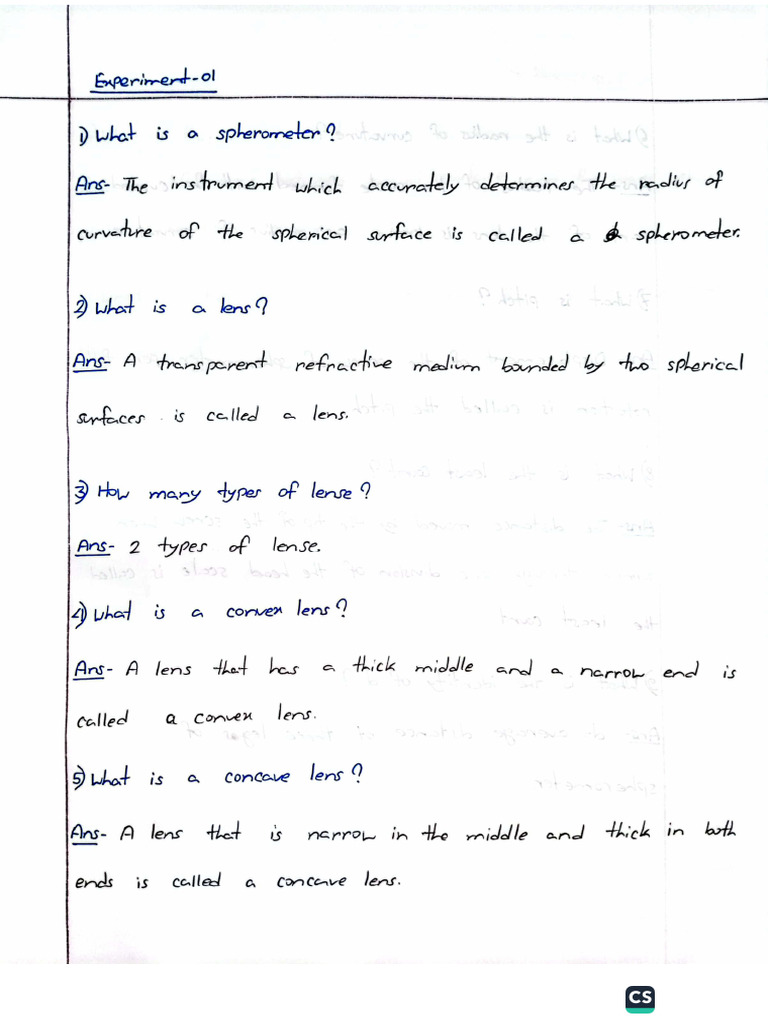 Experiment-01
1) What is a spherometer?
Ans- The instrument which accurately determines the radius of
curvature of the spherical surface is called a spherometer.
2) What is a lens?
Ans- A transparent refractive medium bounded by two spherical
surfaces is called a lens.
3) How many types of lense?
Ans- 2 types of lense.
4) What is a convex lens?
Ans- A lens that has a thick middle and a narrow end is
called a convex lens.
5) What is a concave lens?
Ans- A lens that is narrow in the middle and thick in both
ends is called a concave lens.
CS